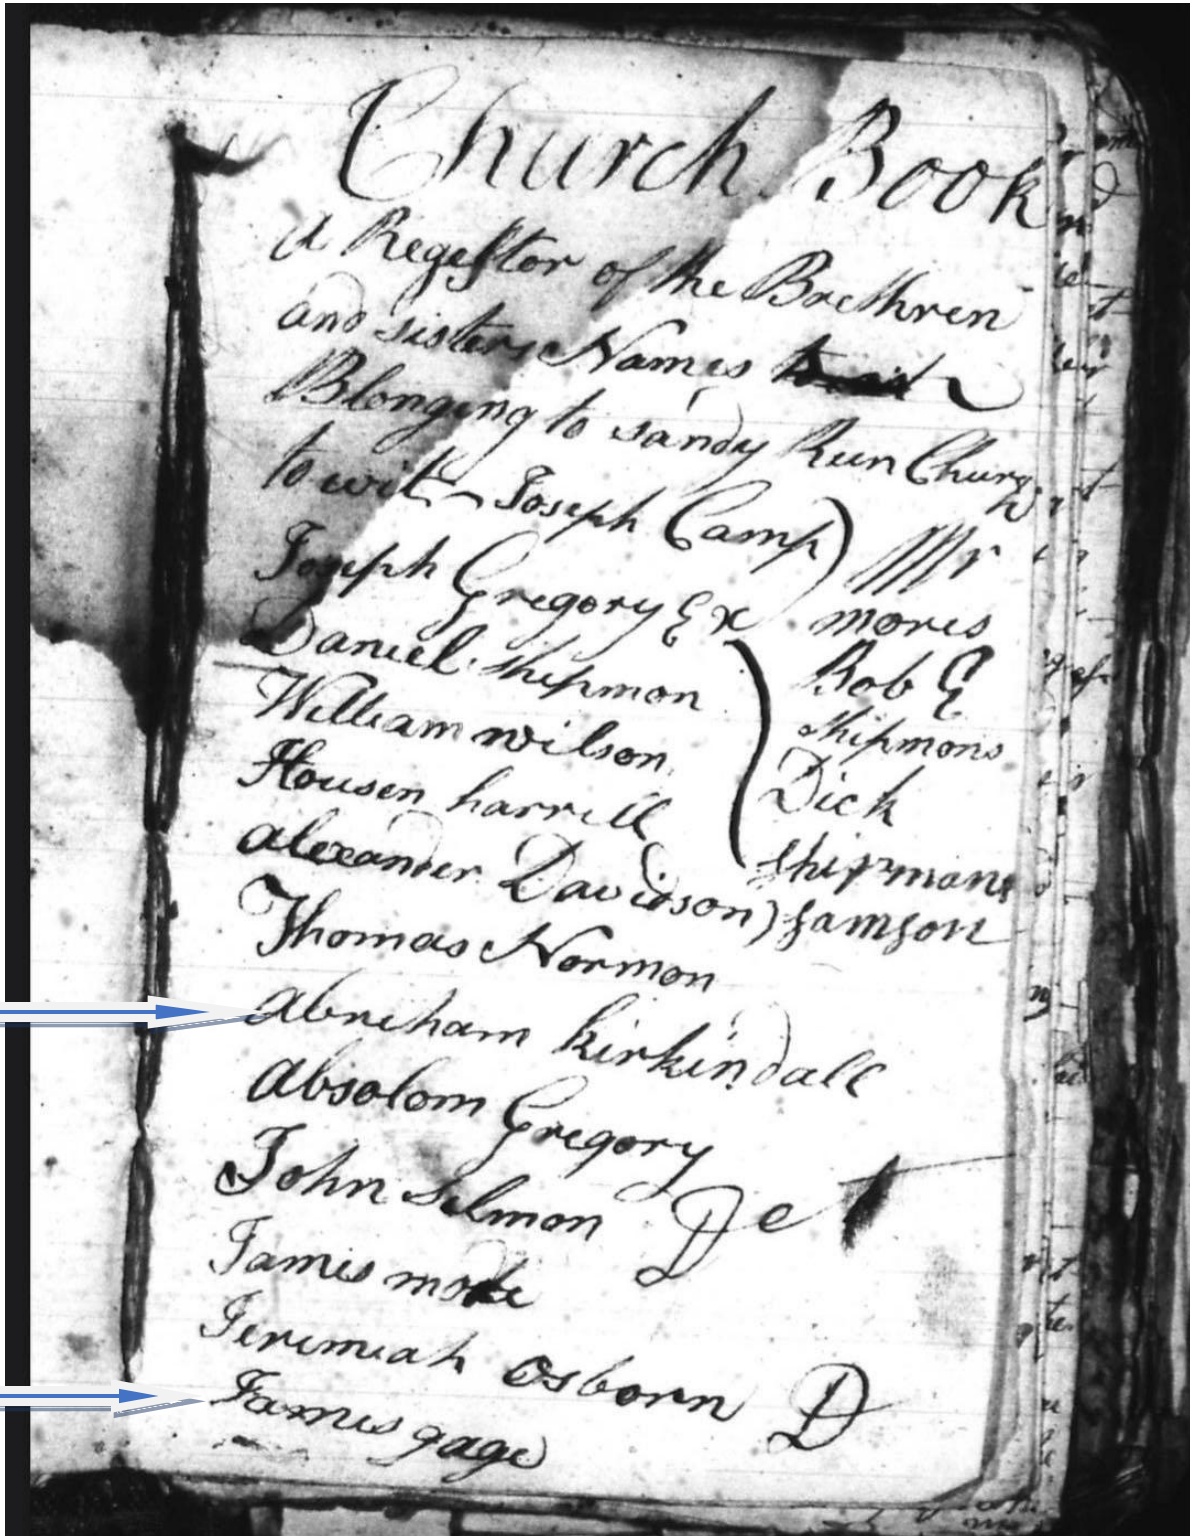 Church Book
A Regestor of the Brethren
and sisters Names
Blonging to sandy Run Church
to wit Joseph Camp
Joseph Gregory Ex
Daniel shipmon
William wilson
Housen harrill
alexander Davidson
Thomas Normon
abreham kirkindall
absolom Gregory
John Selmon De
James
Jeremiah Osborn D
James gage
mores
Bob E
shipmons
Dick
shipmans
samson